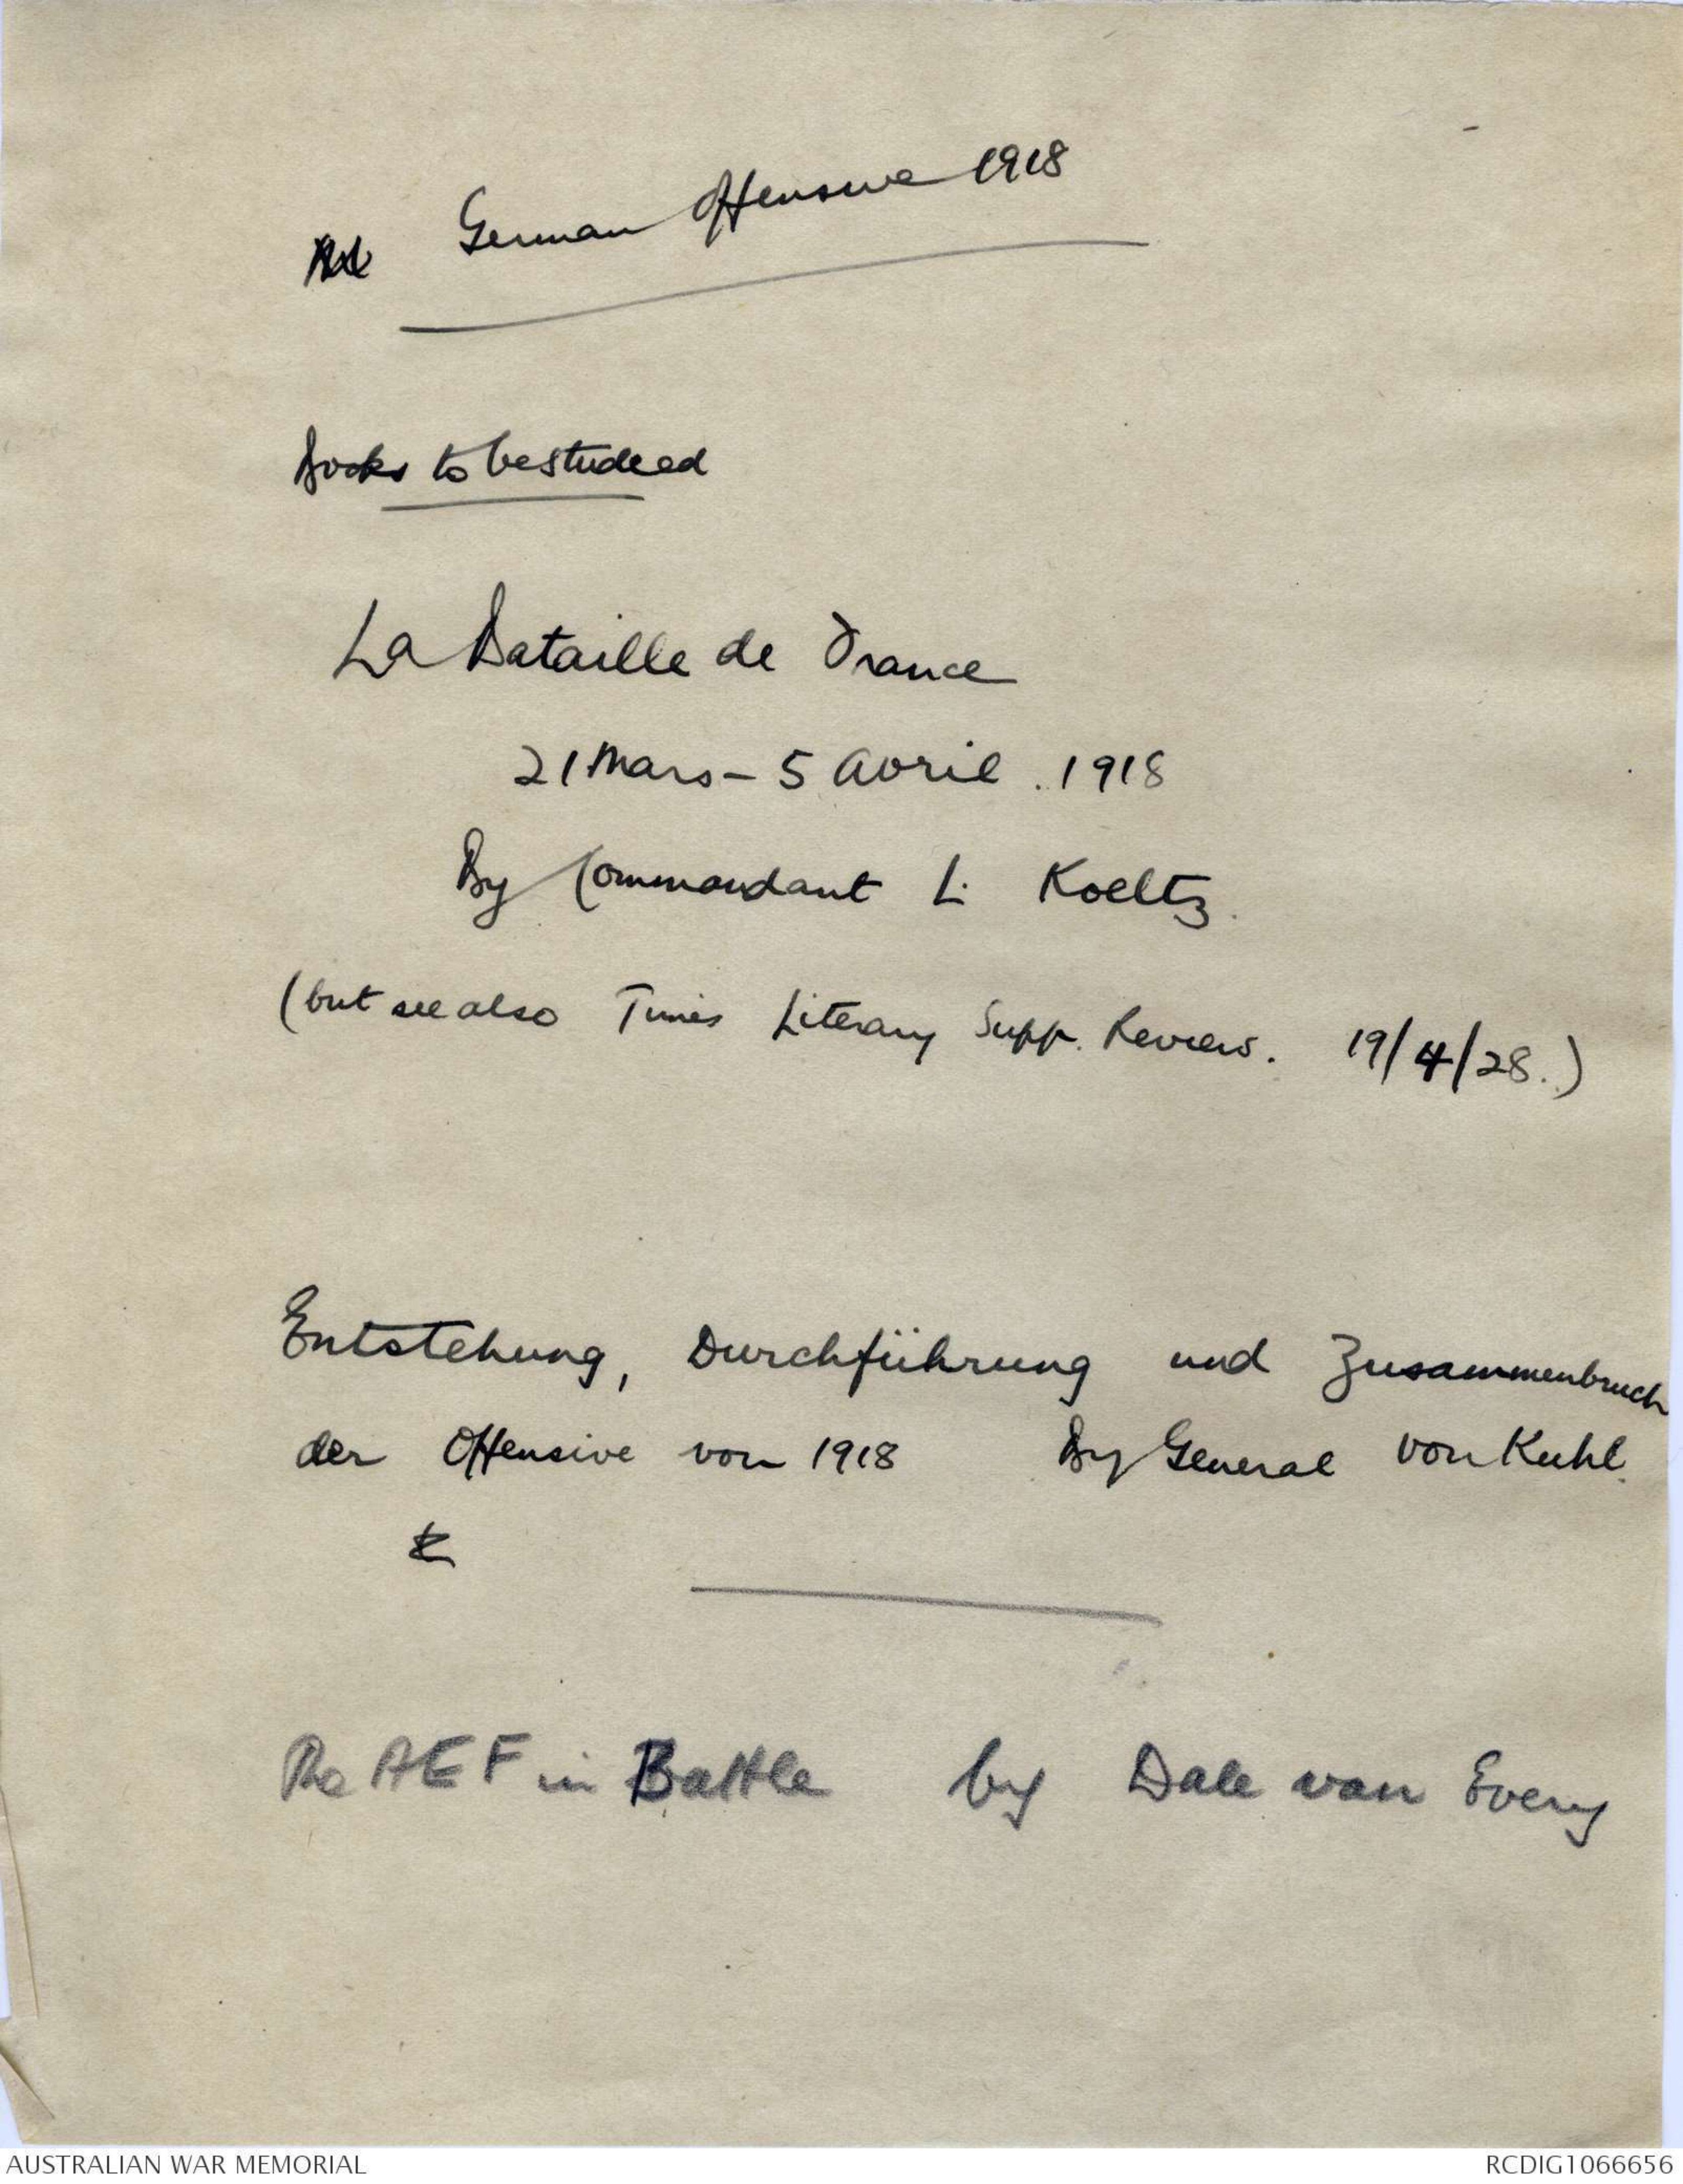 German Offensive 1918
Books to be studied
La Bataille de France
21 Mars - 5 Avril . 1918
By Commandant L. Koeltz.
(but see also Times Literary Supp. Review. 19/4/28.)
Entstehung, Durchführung und Zusammenbruch
der Offensive von 1918 By General von Kuhl.
The AEF in Battle by Dale van Every
AUSTRALIAN WAR MEMORIAL RCDIG1066656